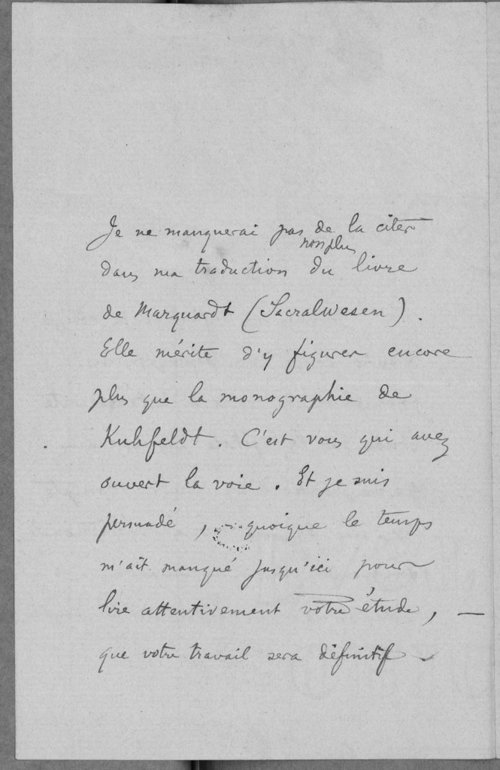 Je ne manquerai pas de la citer
non plus
dans ma traduction du livre
de Marquardt (Sacralwesen).
Elle mérite d'y figurer encore
plus que la monographie de
Kuhfeldt. C'est vous qui avez
ouvert la voie. Et je suis
persuadé, quoique le temps
m'ait manqué jusqu'ici pour
lire attentivement votre étude, —
que votre travail sera définitif.